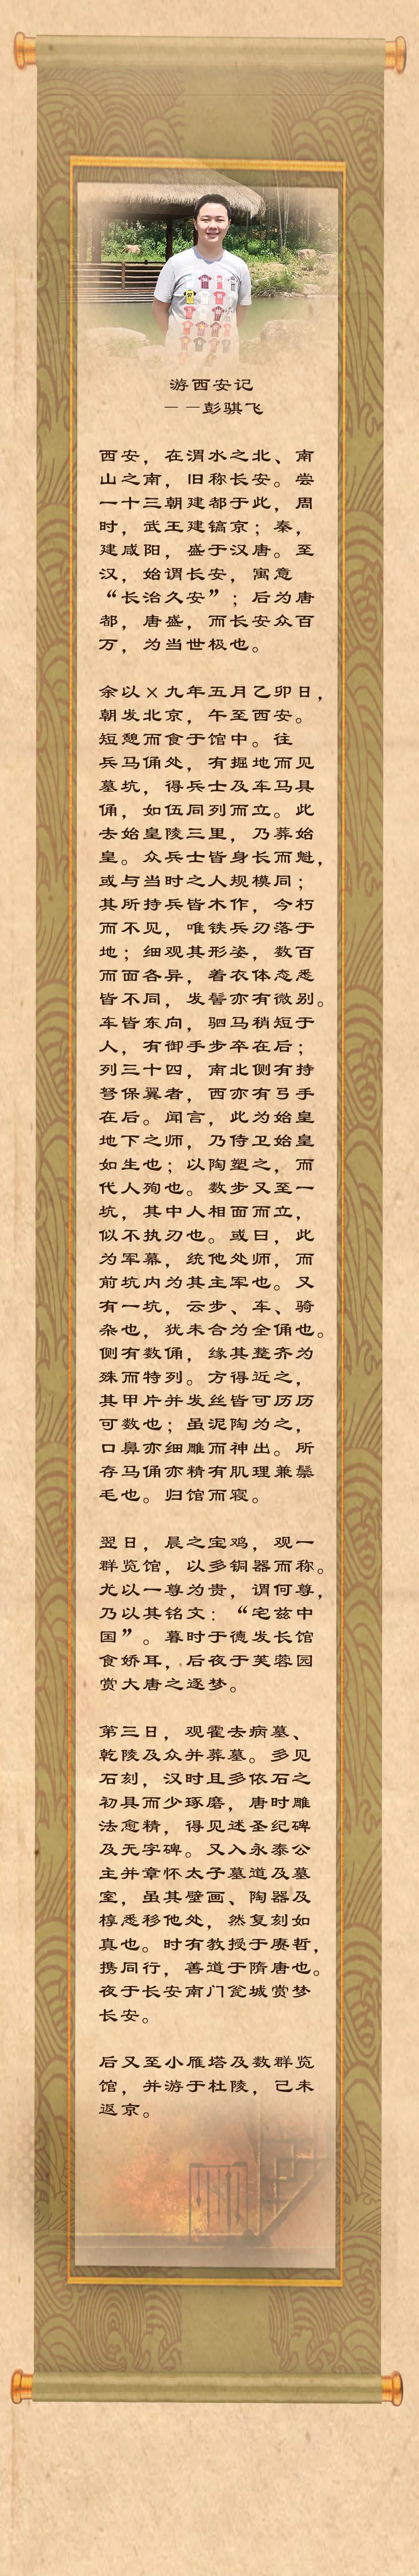 游西安记
——彭骐飞
西安，在渭水之北、南
山之南，旧称长安。尝
一十三朝建都于此，周
时，武王建镐京；秦，
建咸阳，盛于汉唐。至
汉，始谓长安，寓意
“长治久安”；后为唐
都，唐盛，而长安众百
万，为当世极也。
余以×九年五月乙卯日，
朝发北京，午至西安。
短憩而食于馆中。往
兵马俑处，有掘地而见
墓坑，得兵士及车马具
俑，如伍同列而立。此
去始皇陵三里，乃葬始
皇。众兵士皆身长而魁，
或与当时之人规模同；
其所持兵皆木作，今朽
而不见，唯铁兵刃落于
地；细观其形姿，数百
而面各异，着衣体态悉
皆不同，发髻亦有微别。
车皆东向，驷马稍短于
人，有御手步卒在后；
列三十四，南北侧有持
弩保翼者，西亦有弓手
在后。闻言，此为始皇
地下之师，乃侍卫始皇
如生也；以陶塑之，而
代人殉也。数步又至一
坑，其中人相面而立，
似不执刃也。或曰，此
为军幕，统他处师，而
前坑内为其主军也。又
有一坑，云步、车、骑
杂也，犹未合为全俑也。
侧有数俑，缘其整齐为
殊而特列。方得近之，
其甲片并发丝皆可历历
可数也；虽泥陶为之，
口鼻亦细雕而神出。所
存马俑亦精有肌理兼鬃
毛也。归馆而寝。
翌日，晨之宝鸡，观一
群览馆，以多铜器而称。
尤以一尊为贵，谓何尊，
乃以其铭文：“宅兹中
国”。暮时于德发长馆
食娇耳，后夜于芙蓉园
赏大唐之逐梦。
第三日，观霍去病墓、
乾陵及众并葬墓。多见
石刻，汉时且多依石之
初具而少琢磨，唐时雕
法愈精，得见述圣纪碑
及无字碑。又入永泰公
主并章怀太子墓道及墓
室，虽其壁画、陶器及
椁悉移他处，然复刻如
真也。时有教授于赓哲，
携同行，善道于隋唐也。
夜于长安南门瓮城赏梦
长安。
后又至小雁塔及数群览
馆，并游于杜陵，己未
返京。